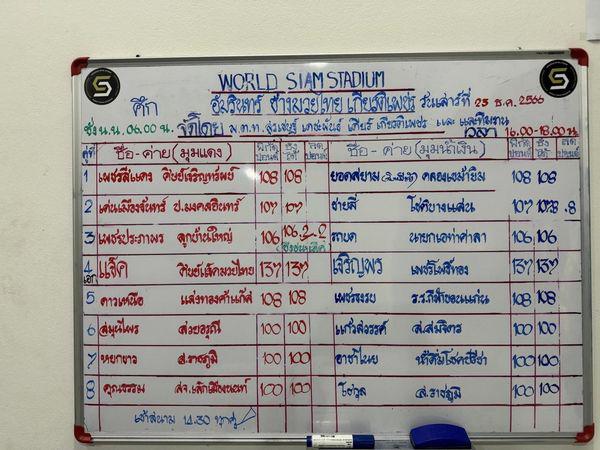 WORLD SIAM STADIUM
ศึก อัมรินทร์ ช้างมวยไทย เกียรติเพชร วันเสาร์ที่ 23 ธ.ค. 2566
ชั่ง น.น. 06.00 น. จัดโดย พ.ต.ท. และทีมงาน เวลา 16.00-18.00 น.
คู่ที่ ชื่อ-ค่าย (มุมแดง) พิกัด ปอนด์ ชั่งได้ ลด ปอนด์ ชื่อ-ค่าย (มุมน้ำเงิน) พิกัด ปอนด์ ชั่งได้ ลด ปอนด์
1 เพชรสีแดง ศิษย์เจริญทรัพย์ 108 108 ยอดสยาม คลองเขม้ายิม 108 108
2 เด่นเมืองจันทร์ ป.มงคลอินทร์ 107 107 ชายสี่ โชติบางแสน 107 .8
3 เพชรประภาพร ลูกบ้านใหญ่ 106 106.2 .2 รถบด นายกเอท่าศาลา 106 106
4 เอก แจ็ค ศิษย์เจ๊คมวยไทย 137 137 เจริญพร เพชรโพธิ์ทอง 137 137
5 ดาวเหนือ 108 108 ร.ร.กีฬาขอนแก่น 108 108
6 สมุนไพร สวยอรุณี 100 100 แก้วสวรรค์ ส.สมจิตร 100 100
7 หยกขาว ส.ราชภูมิ 100 100 อาชาไนย 100 100
8 คุณธรรม สจ.เล็กเมืองนนท์ 100 100 ส.ราชภูมิ 100 100
เข้าสนาม 14.30